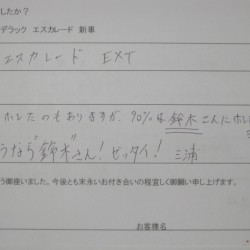 したか？
デラック エスカレード 新車
エスカレード EXT
ホレたのもありますが、90%は鈴木さんにホレ
うなら"鈴木"さん！ゼッタイ！ 三浦
う御座いました。今後とも末永いお付き合いの程宜しく御願い申し上げます。
お客様名